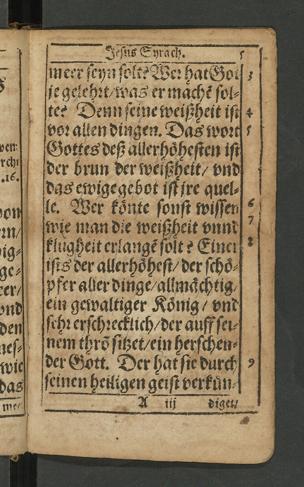 Jesus Syrach.
meer seyn solte? Wer hat Got 3
je gelehrt / was er mache sol-
te? Denn seine weißheit ist 4
vor allen dingen. Das wort 5
Gottes deß allerhöhesten ist
der brun der weißheit / vnd
das ewige gebot ist jre quel-
le. Wer könte sonst wissen 6
wie man die weißheit vnnd 7
klugheit erlange solt? Einer 8
ists der allerhöhest / der schö-
pfer aller dinge / allmächtig /
ein gewaltiger König / vnd
sehr erschrecklich / der auff sei-
nem thrō sitzet / ein herschen-
der Gott. Der hat sie durch 9
seinen heiligen geist verkün-
A iij diget /